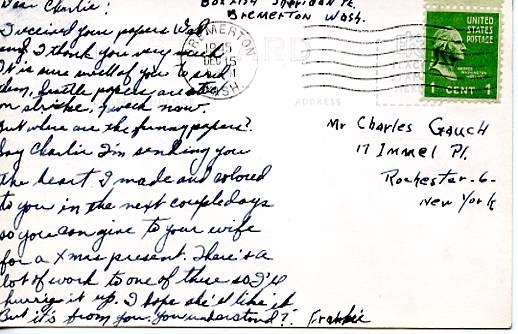 Dear Charlie!
I received your papers Wed.
and I thank you very much
It is sure swell of you to send
dem, Seattle papers are still
on strike, 1 week now.
But where are the funny papers?
Say Charlie I'm sending you
the heart I made and colored
to you in the next couple days
so you can give to your wife
for a Xmas present. There's a
lot of work to one of these so I'll
hurrie it up. I hope she'd like it
But it's from you. You understand? Frankie
Box 1154 Sheridan Pk.
Bremerton Wash.
BREMERTON
DEC 15
WASH.
ADDRESS
UNITED
STATES
POSTAGE
GEORGE
WASHINGTON
1 CENT 1
Mr Charles Gauch
17 Immel Pl.
Rochester-6-
New York